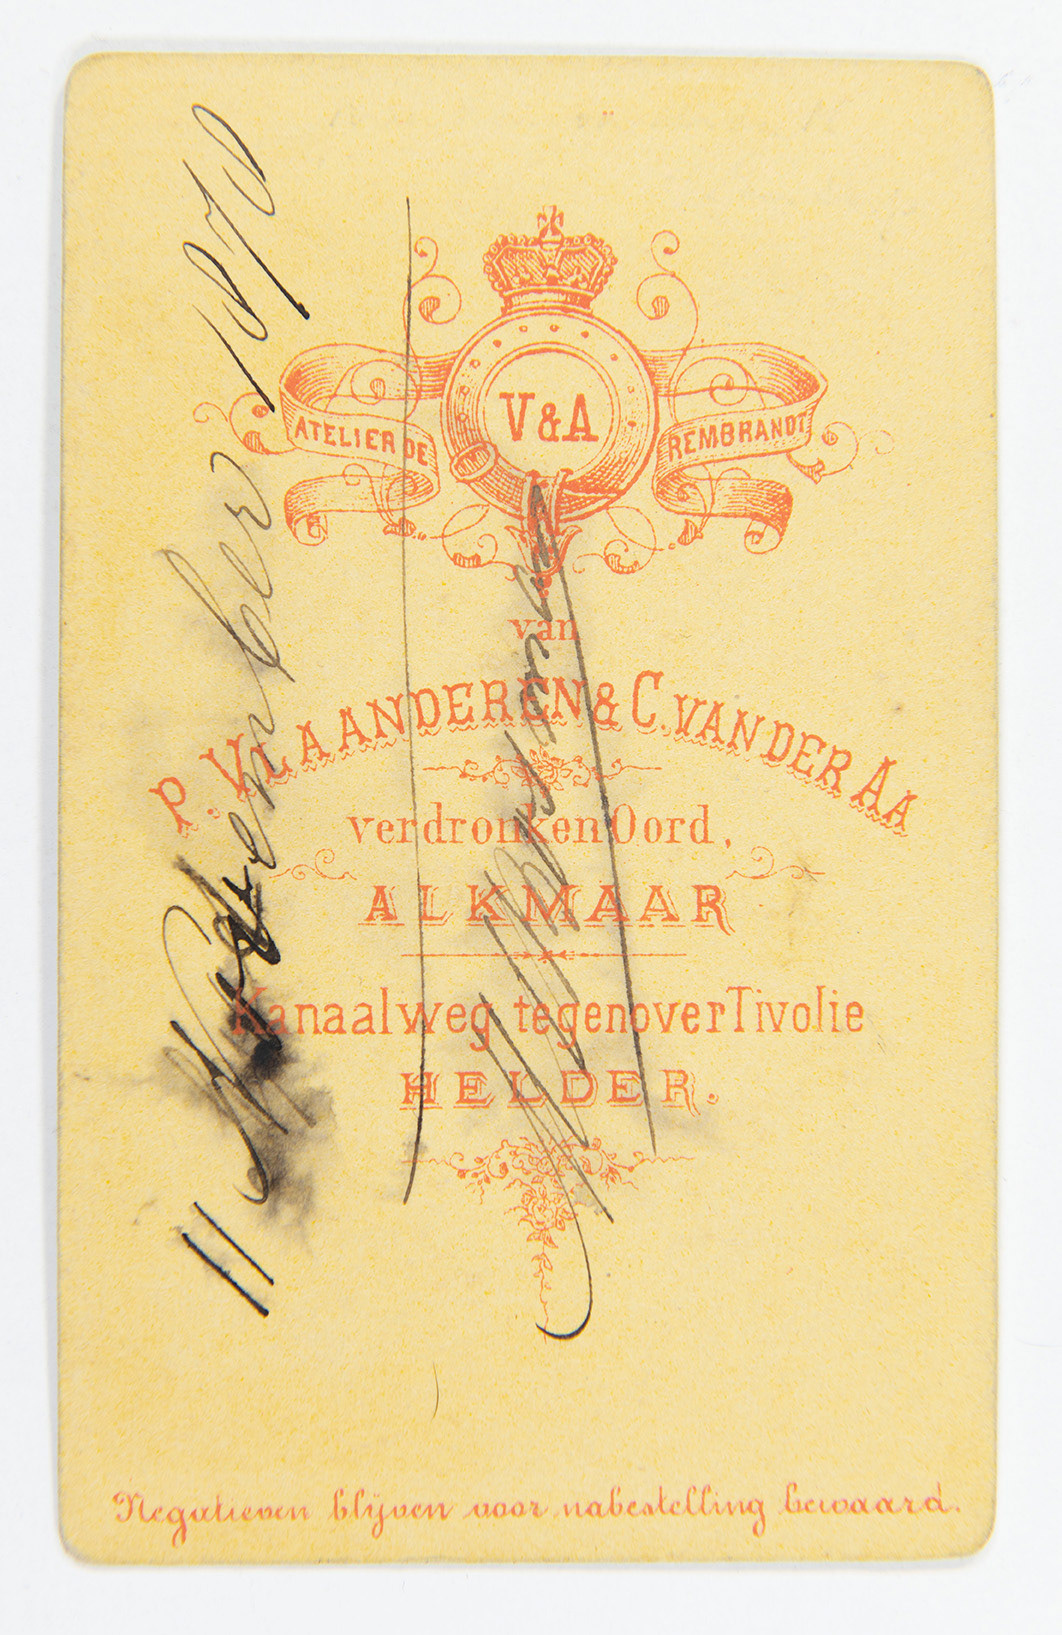 V&A
ATELIER DE REMBRANDT
van
P. VLAANDEREN & C. VAN DER AA
verdronken Oord,
ALKMAAR
Kanaalweg tegenover Tivolie
HELDER.
Negatieven blijven voor nabestelling bewaard.
11 November 1878